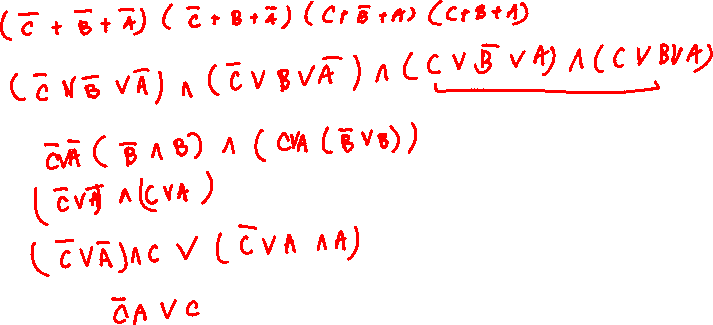 (C̅ + B̅ + A̅) ( C̅ + B + A̅) ( C + B̅ + A) (C + B + A)
(C̅ ∨ B̅ ∨ A̅) ∧ (C̅ ∨ B ∨ A̅) ∧ (C ∨ B̅ ∨ A) ∧ (C ∨ B ∨ A)
C̅∨A̅ ( B̅ ∧ B) ∧ ( C∨A (B̅ ∨ B))
(C̅∨A̅) ∧ (C∨A)
(C̅∨A̅)∧C ∨ (C̅ ∨ A ∧ A)
C̅A ∨ C